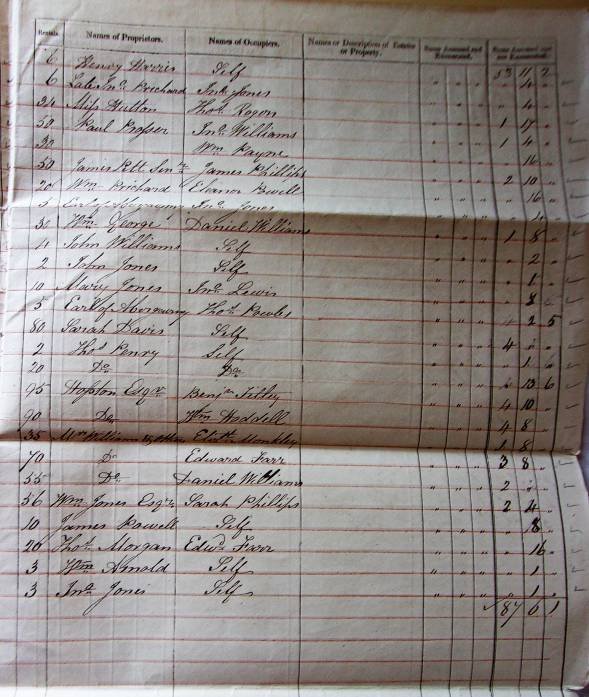 Rentals. Names of Proprietors. Names of Occupiers. Names or Description of Estates or Property. Sums Assessed and Exonerated. Sums Assessed and not Exonerated.
6 Henry Morris Self 53 11 2
6 Late Jno. Prichard Jno. Jones " " " " 4 "
24 Miss Hutton Thos. Rogers " " " " 4 "
50 Paul Prosser Jno. Williams " " " 1 17 "
30 Wm. Payne " " " 1 4 "
50 James Pitt Senr. James Phillips " " " " 16 "
20 Wm. Prichard Eleanor Powell " " " 2 10 "
5 Earl of Abergavenny Jno. Jones " " " " 16 "
30 Wm. George Daniel Williams " " " " 4 "
4 John Williams Self " " " 1 8 "
2 John Jones Self " " " " 2 "
10 Mary Jones Jno. Lewis " " " " 1 "
5 Earl of Abergavenny Thos. Powles " " " " 8 "
80 Sarah Davis Self " " " " 2 5
2 Thos. Penry Self " " " 4 " "
20 Do. Do. " " " " 1 "
95 Hopton Esqr. Benjn. Tilley " " " " 13 6
90 Do. Wm. Waddell " " " 4 10 "
35 Mr. William Elizth. Monkley " " " 4 8
70 Do. Edward Farr " " " 1 8
55 Do. Daniel Williams " " " 3 8 "
56 Wm. Jones Esqr. Sarah Phillips " " " 2 " "
10 James Powell Self " " " 2 4 "
20 Thos. Morgan Edwd. Farr " " " " 8 "
3 Wm. Arnold Self " " " " 16 "
3 Jno. Jones Self " " " " 1 "
" 1 "
87 6 1